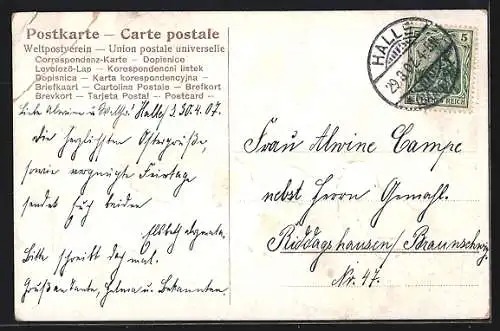 Postkarte — Carte postale
Weltpostverein — Union postale universelle
Correspondenz-Karte — Dopisnice
Levelező-Lap — Korespondencni listek
Dopisnica — Karta korespondencyjna —
Briefkaart — Cartolina Postale — Brefkort
Brevkort — Tarjeta Postal — Postcard —
Liebe Alwine u. Halle, 30.4.07.
die herzlichsten Ostergrüße,
sowie vergnügte Feiertage
sendet Euch beiden
Elsbeth
Bitte schreibt doch mal.
Gruß an Tante, Helma u. Bekannten
HALLE
29.3.07. 4-5N
5
DEUTSCHES REICH
Frau Alwine Campe
nebst Herrn Gemahl.
Riddagshausen/Braunschweig
Nr. 47.